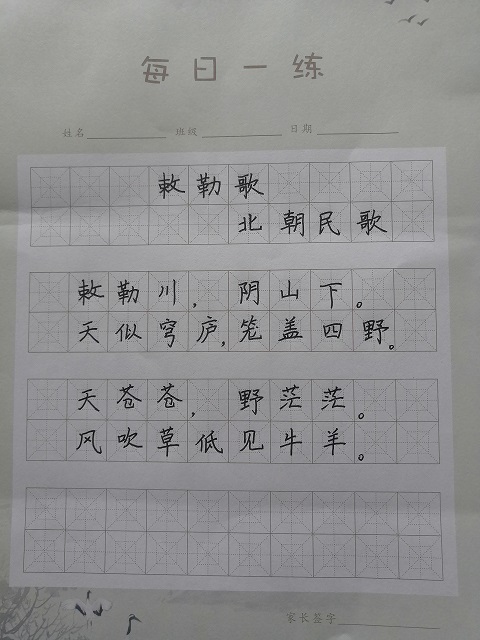 每日一练
姓名 班级 日期
敕勒歌
北朝民歌
敕勒川，阴山下。
天似穹庐，笼盖四野。
天苍苍，野茫茫。
风吹草低见牛羊。
家长签字